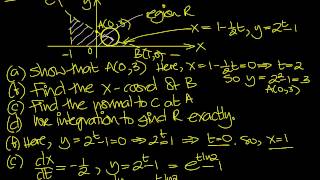 region R
A(0,3)
x = 1-½t, y = 2^t-1
-1 0 B(1,0) x
(a) show that A(0,3) Here, x = 1-½t=0 ⇒ t=2
So y = 2²-1 = 3
A(0,3)
(b) Find the x-coord of B
(c) Find the normal to C at A
(d) use integration to find R exactly.
(b) Here, y = 2^t-1 = 0 ⇒ t=0. so, x=1
(c) dx/dt = -½, y = 2^t-1 = e^(t ln2)-1